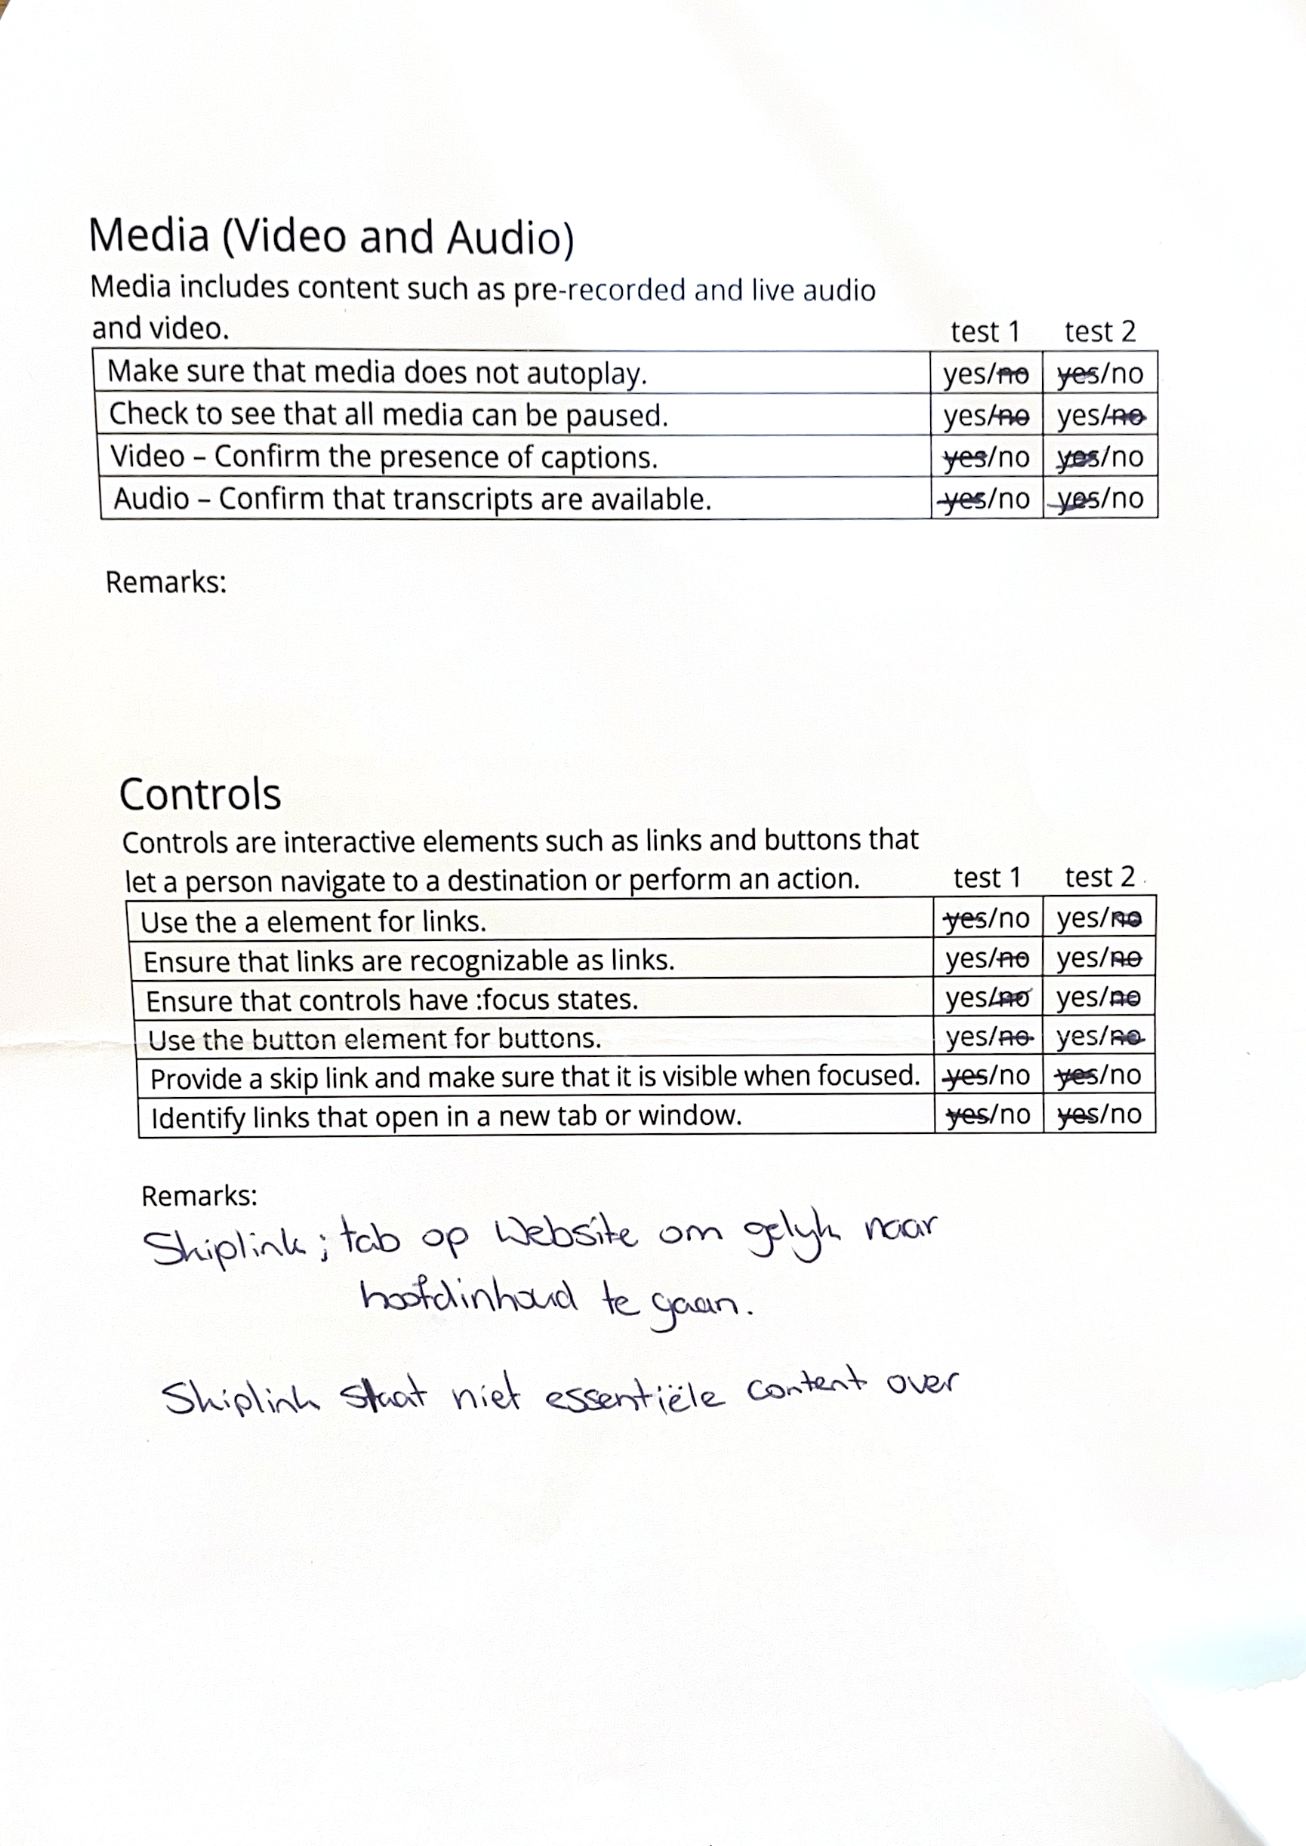 Media (Video and Audio)
Media includes content such as pre-recorded and live audio
and video. test 1 test 2
Make sure that media does not autoplay. yes/no yes/no
Check to see that all media can be paused. yes/no yes/no
Video – Confirm the presence of captions. yes/no yes/no
Audio – Confirm that transcripts are available. yes/no yes/no
Remarks:
Controls
Controls are interactive elements such as links and buttons that
let a person navigate to a destination or perform an action. test 1 test 2
Use the a element for links. yes/no yes/no
Ensure that links are recognizable as links. yes/no yes/no
Ensure that controls have :focus states. yes/no yes/no
Use the button element for buttons. yes/no yes/no
Provide a skip link and make sure that it is visible when focused. yes/no yes/no
Identify links that open in a new tab or window. yes/no yes/no
Remarks:
Skiplink ; tab op website om gelijk naar
hoofdinhoud te gaan.
Skiplink slaat niet essentiële content over